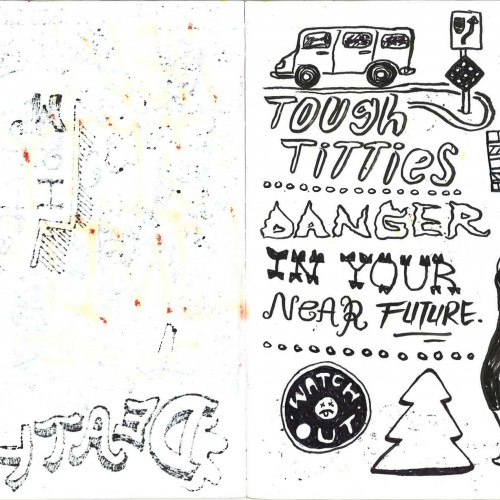 TOUGH
TITTIES
DANGER
IN YOUR
NEAR FUTURE.
WATCH
OUT
DEATH